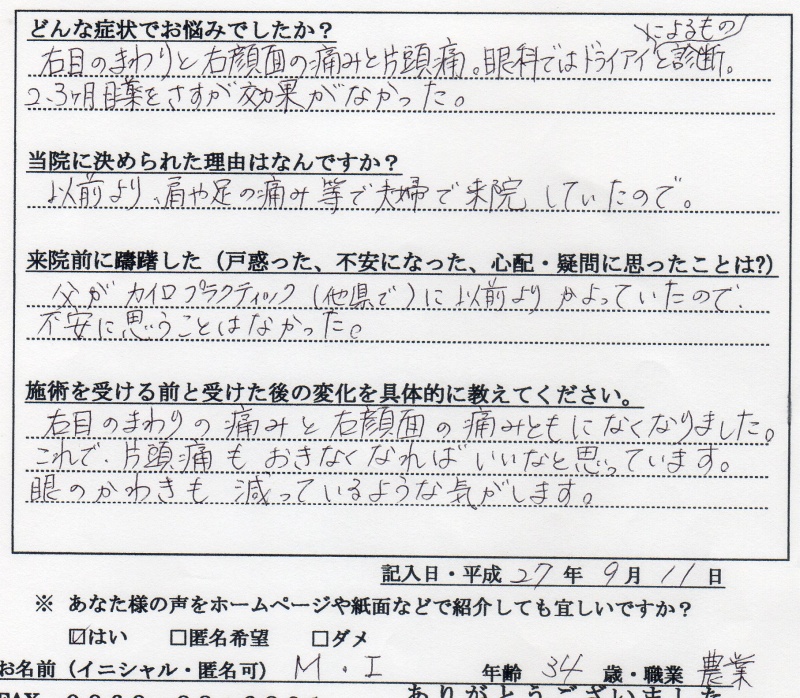 どんな症状でお悩みでしたか？
によるもの
右目のまわりと右顔面の痛みと片頭痛。眼科ではドライアイと診断。
2、3ヶ月目薬をさすが効果がなかった。
当院に決められた理由はなんですか？
以前より、肩や足の痛み等で夫婦で来院していたので。
来院前に躊躇した（戸惑った、不安になった、心配・疑問に思ったことは?）
父がカイロプラクティック（他県で）に以前よりかよっていたので、
不安に思うことはなかった。
施術を受ける前と受けた後の変化を具体的に教えてください。
右目のまわりの痛みと右顔面の痛みともになくなりました。
これで、片頭痛もおきなくなればいいなと思っています。
眼のかわきも減っているような気がします。
記入日・平成 27 年 9 月 11 日
※ あなた様の声をホームページや紙面などで紹介しても宜しいですか？
☑はい □匿名希望 □ダメ
お名前（イニシャル・匿名可） M・I 年齢 34 歳・職業 農業
ありがとうございました